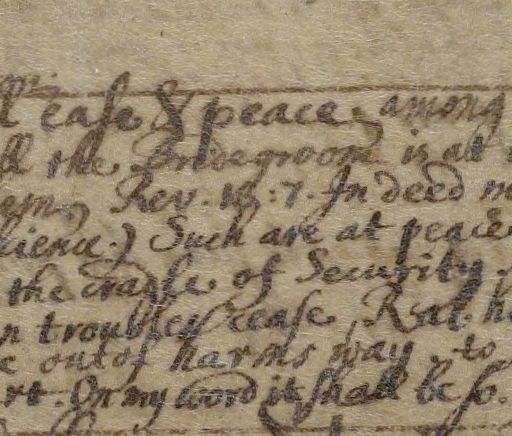 ease & peace, among
the Bridegroom is at
Rev. 18:7. In deed
Such are at peace
the cradle of Security.
troubles cease, Real
out of harms way. to
On my word it shall be so.